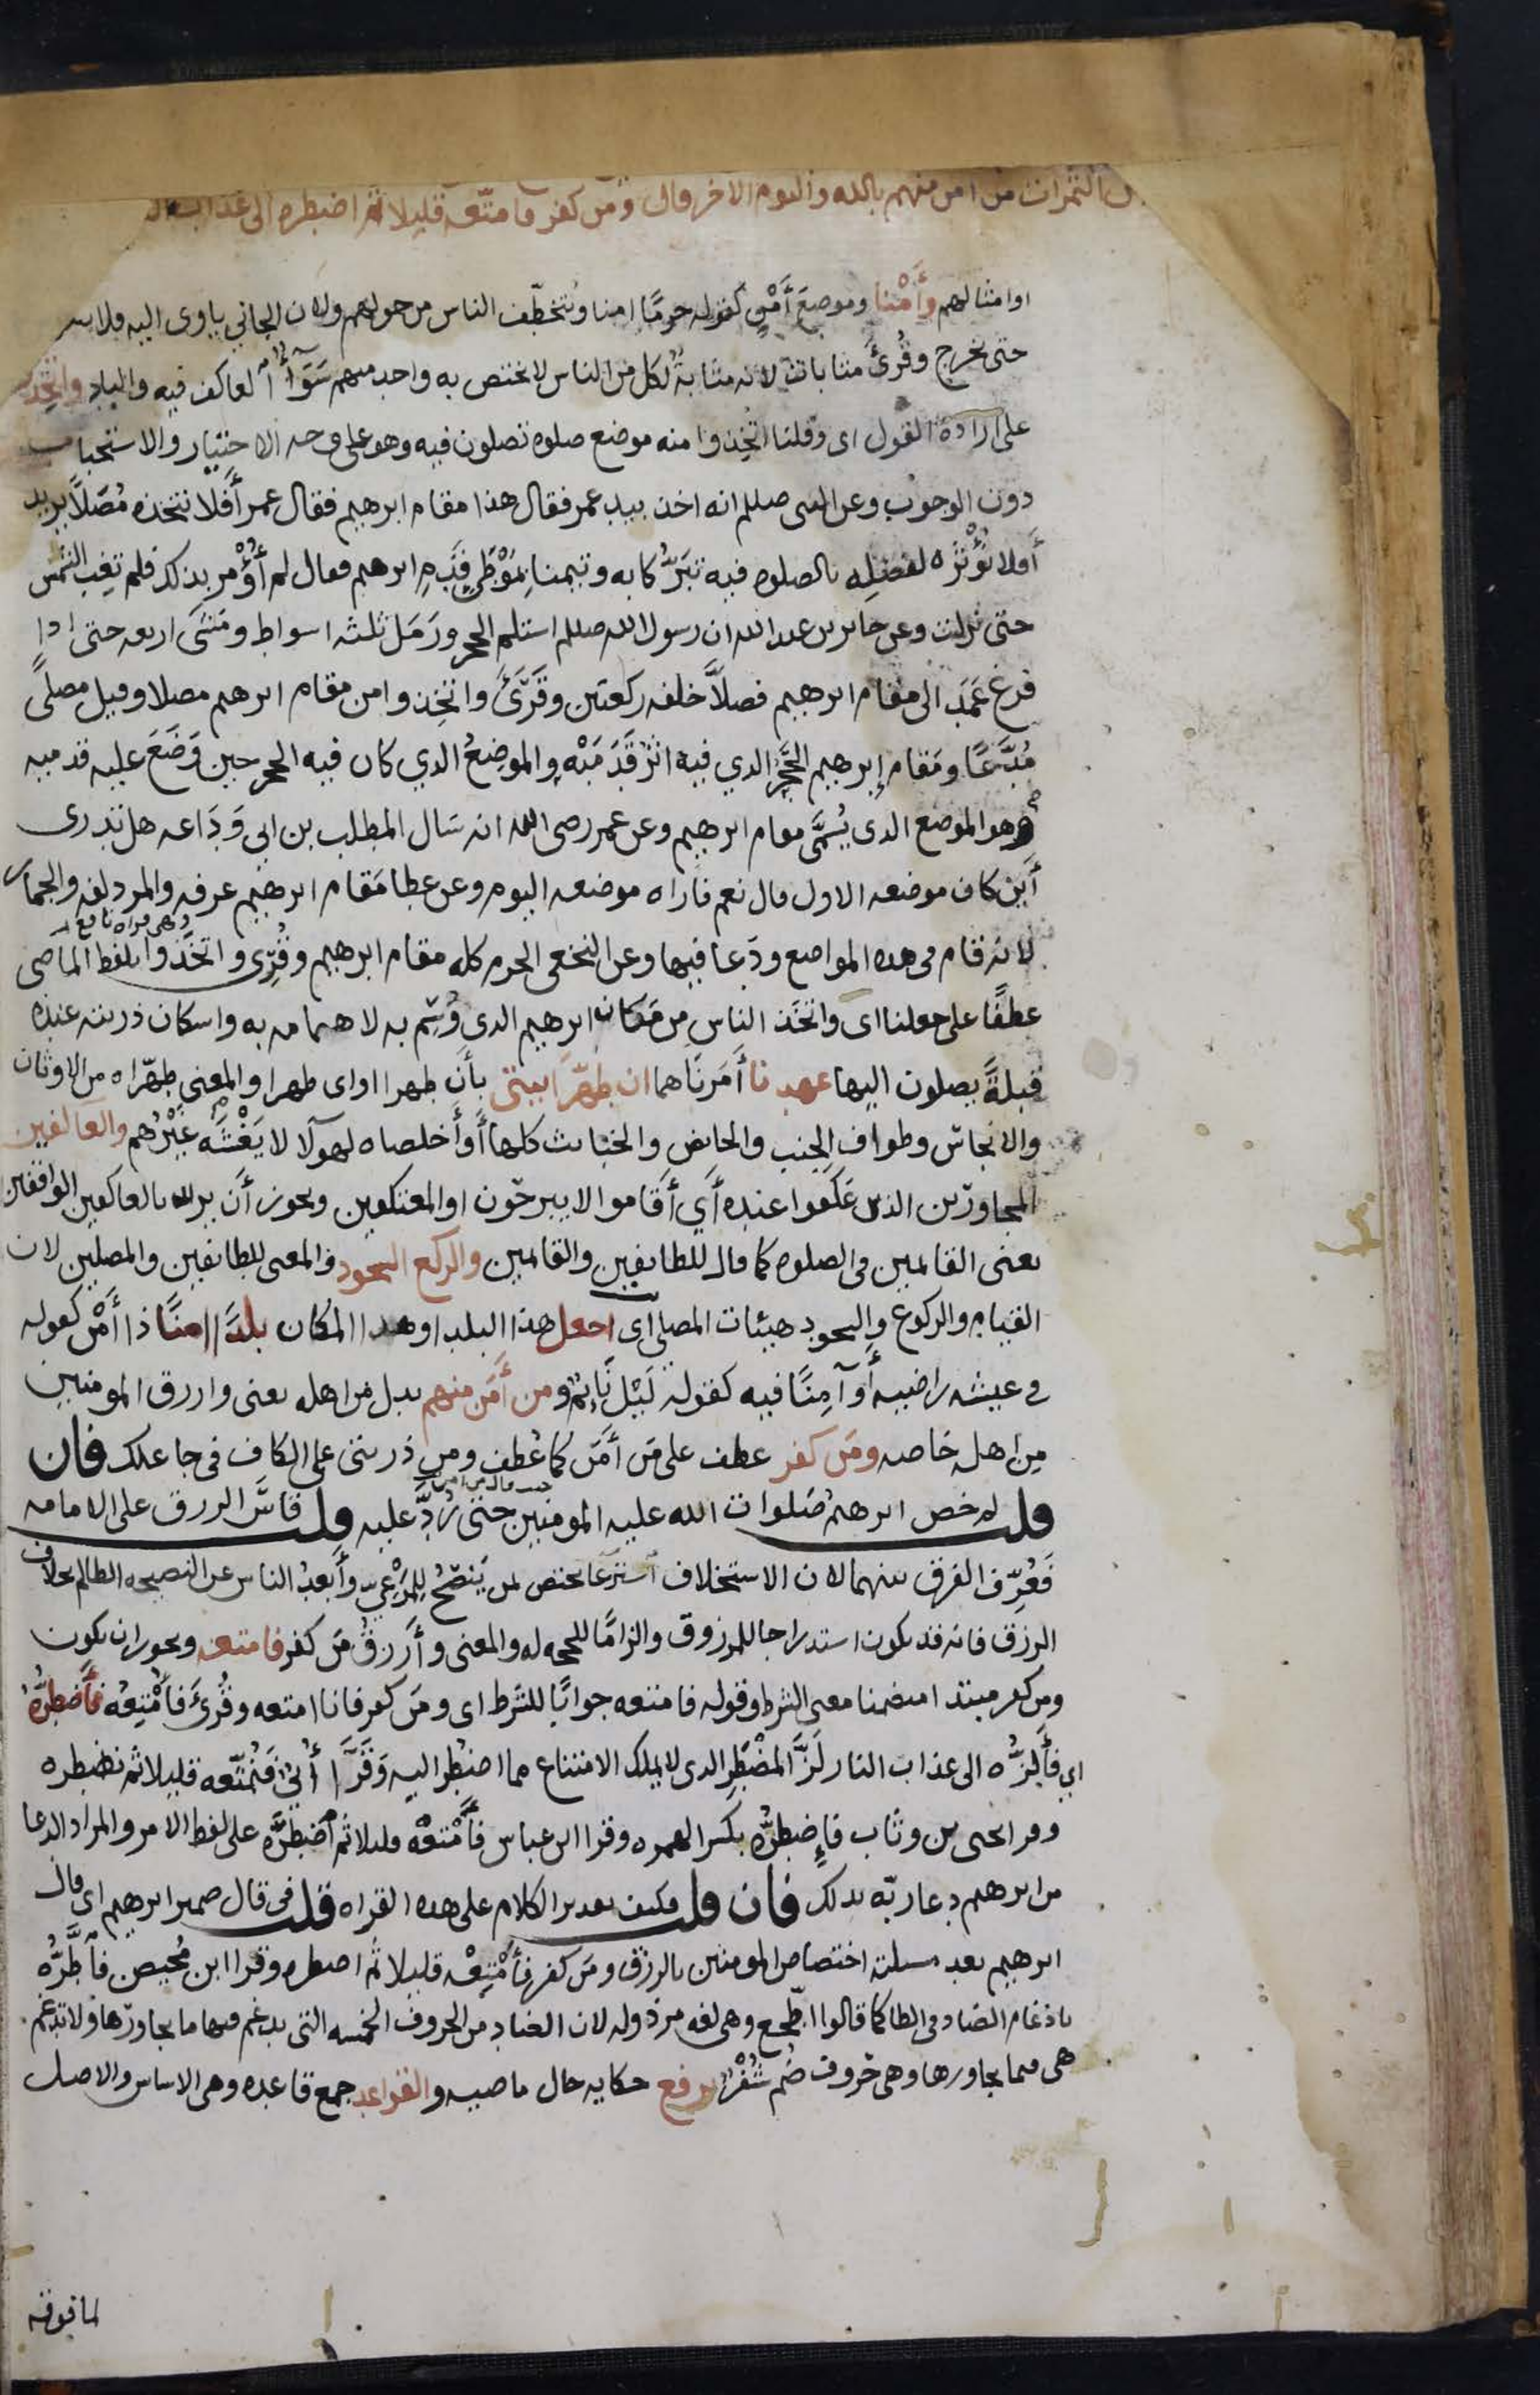 الثمرات من امن منهم بالله واليوم الاخر قال ومن كفر فامتّعه قليلا ثم اضطره الى عذاب
او امثالهم وأَمْنا وموضعَ أَمْنٍ كقوله حرمًا امنا ويُتخطّف الناس من حولهم ولان الجاني ياوى اليه فلا
حتى يخرج وقُرئ مثابات لانه مثابةٌ لكل من الناس لا يختص به واحد منهم سَوَآءً العاكف فيه والباد واتخذوا
على ارادة القول اى وقلنا اتَّخِذوا منه موضع صلوه تصلون فيه وهو على وجه الاختيار والاستحباب
دون الوجوب وعن النبى صللم انه اخذ بيد عمر فقال هذا مقام ابرهيم فقال عمر أَفلا نتخذه مُصَلاًّ يريد
أَفلا نُؤْثِرُه لفضلِه بالصلوه فيه تَبَرُّكا به وتيمنا بِمَوْطَىِٔ قَدَمِ ابرهيم فعال لم أُؤْمر بذلك فلم تغِب الشمس
حتى نزلت وعن جابر بن عبد الله ان رسول الله صللم استلم الحجر ورَمَل ثلثه اسواط ومَشَى اربعه حتى اذا
فرغ عَمَد الى مقام ابرهيم فصلاَّ خلفه ركعتين وقَرَأَ واتخِذوا من مقام ابرهيم مصلا وقيل مصلًّى
مُدَّعًا ومَقام إبرهيم الحَجَرُ الدي فيه اثَرُ قَدَمَيْه والموضِعُ الدي كان فيه الحجر حين وَضَعَ عليه قدميه
وهو الموضع الدى يُسَمَّى مقام ابرهيم وعن عمر رضى الله انه سَال المطلب بن ابى وَدَاعه هل تدرى
أَين كان موضعه الاول قال نعم فاراه موضعه اليوم وعن عطا مَقام ابرهيم عرفه والمزدلفه والجمار
لانه قام فى هده المواضع ودَعا فيها وعن النخعى الحرم كله مقام ابرهيم وقُرِئ واتخَذوا بلفط الماضى
وهى قراه نافع
عطفًا على جعلنا اى واتخَذ الناس مِن مَكان ابرهيم الدى وُسِم به لاهتمامه به واسكان ذريته عنده
قبلةً يصلون اليها عهدنا أَمَرنَاهما ان طهّرَا بيتى بأَن طهرا او اى طهرا والمعنى طهّراه من الاوثان
والانجاس وطواف الجنب والحائض والخبائث كلها أَو أَخلصاه لهولا لا يَغْشَه غَيْرُهم والعاكفين
المجاوِرين الذين عَكَفوا عنده أَي أَقَاموا لا يبرحُون او المعتكفين ويجوز أَن يريد بالعاكفين الواقفين
يعنى القائمين فى الصلوه كما قال للطائفين والقائمين والركع السجود والمعنى للطائفين والمصلين لان
القيام والركوع والسجود هيئات المصلى اى اجعل هذا البلد او هدا المكان بلدًا امنًا ذا أَمْن كقوله
فى عيشه راضيه أَو آمِنًا فيه كقوله لَيْل نَائِم ومن أمَن منهم بدل من اهله يعنى وارزق المومنين
مِن اهله خاصه ومَن كفر عطف على مَن أَمَن كما عُطِف ومن ذريتى على الكاف فى جاعلك فان
قلت لم خص ابرهيم صَلوات الله عليه المومنين حتى رُدَّ عليه قلت قاسَ الرزق على الامامه
فَعُرِّف الفرق بينهما لان الاستخلاف استرعا يختص لمن يَنصَحُ للمَرْعِىّ وأَبعدُ الناس عن النصيحه الظالم بخلاف
الرزق فانه قد يكون استدراجا للمرزوق والزامًا للحجه له والمعنى وأَرزقُ مَن كفر فامتعه ويجوز ان يكون
ومن كفر مبتدا متضمنا معنى الشرط وقوله فامتعه جوابًا للشَرط اى ومَن كفر فانا امتعه وقُرِئَ فأُمْتِعُه فأَضطرُّهُ
اي فأَلِزُّه الى عذاب النار لَزَّ المضْطَرِ الدى لا يملك الامتناع مما اضطر اليه وقَرَأ أُبَىٌّ فَنُمَتّعه قليلا ثم نضطره
وقر ايحيى بن وثاب فإِضطرُّه بكسر الهمزه وقرا ابن عباس فَأَمْتعْه قليلا ثم اضطَرَّه على لفط الامر والمراد الدعا
من ابرهيم دعا ربّه بدلك فان قلت فكيف تقدير الكلام على هده القراه قلت فى قال ضمير ابرهيم اى قال
ابرهيم بعد مسلته اختصاص المومنين بالرزق ومَن كفر فأَمْتِعْه قليلا ثُم اضطره وقرا ابن مُحيصن فأَطَّرُّه
بادغام الضاد فى الطا كما قالوا اطّجع وهى لغه مرذوله لان الضاد من الحروف الخمسه التى يدغم فيها ما يجاورها ولا تدغم
هى فيما يجاورها وهى حُروف ضُم شُفْرُ يرفع حكايه حال ماضيه والقواعد جمع قاعده وهى الاساس والاصل
لما فوقه